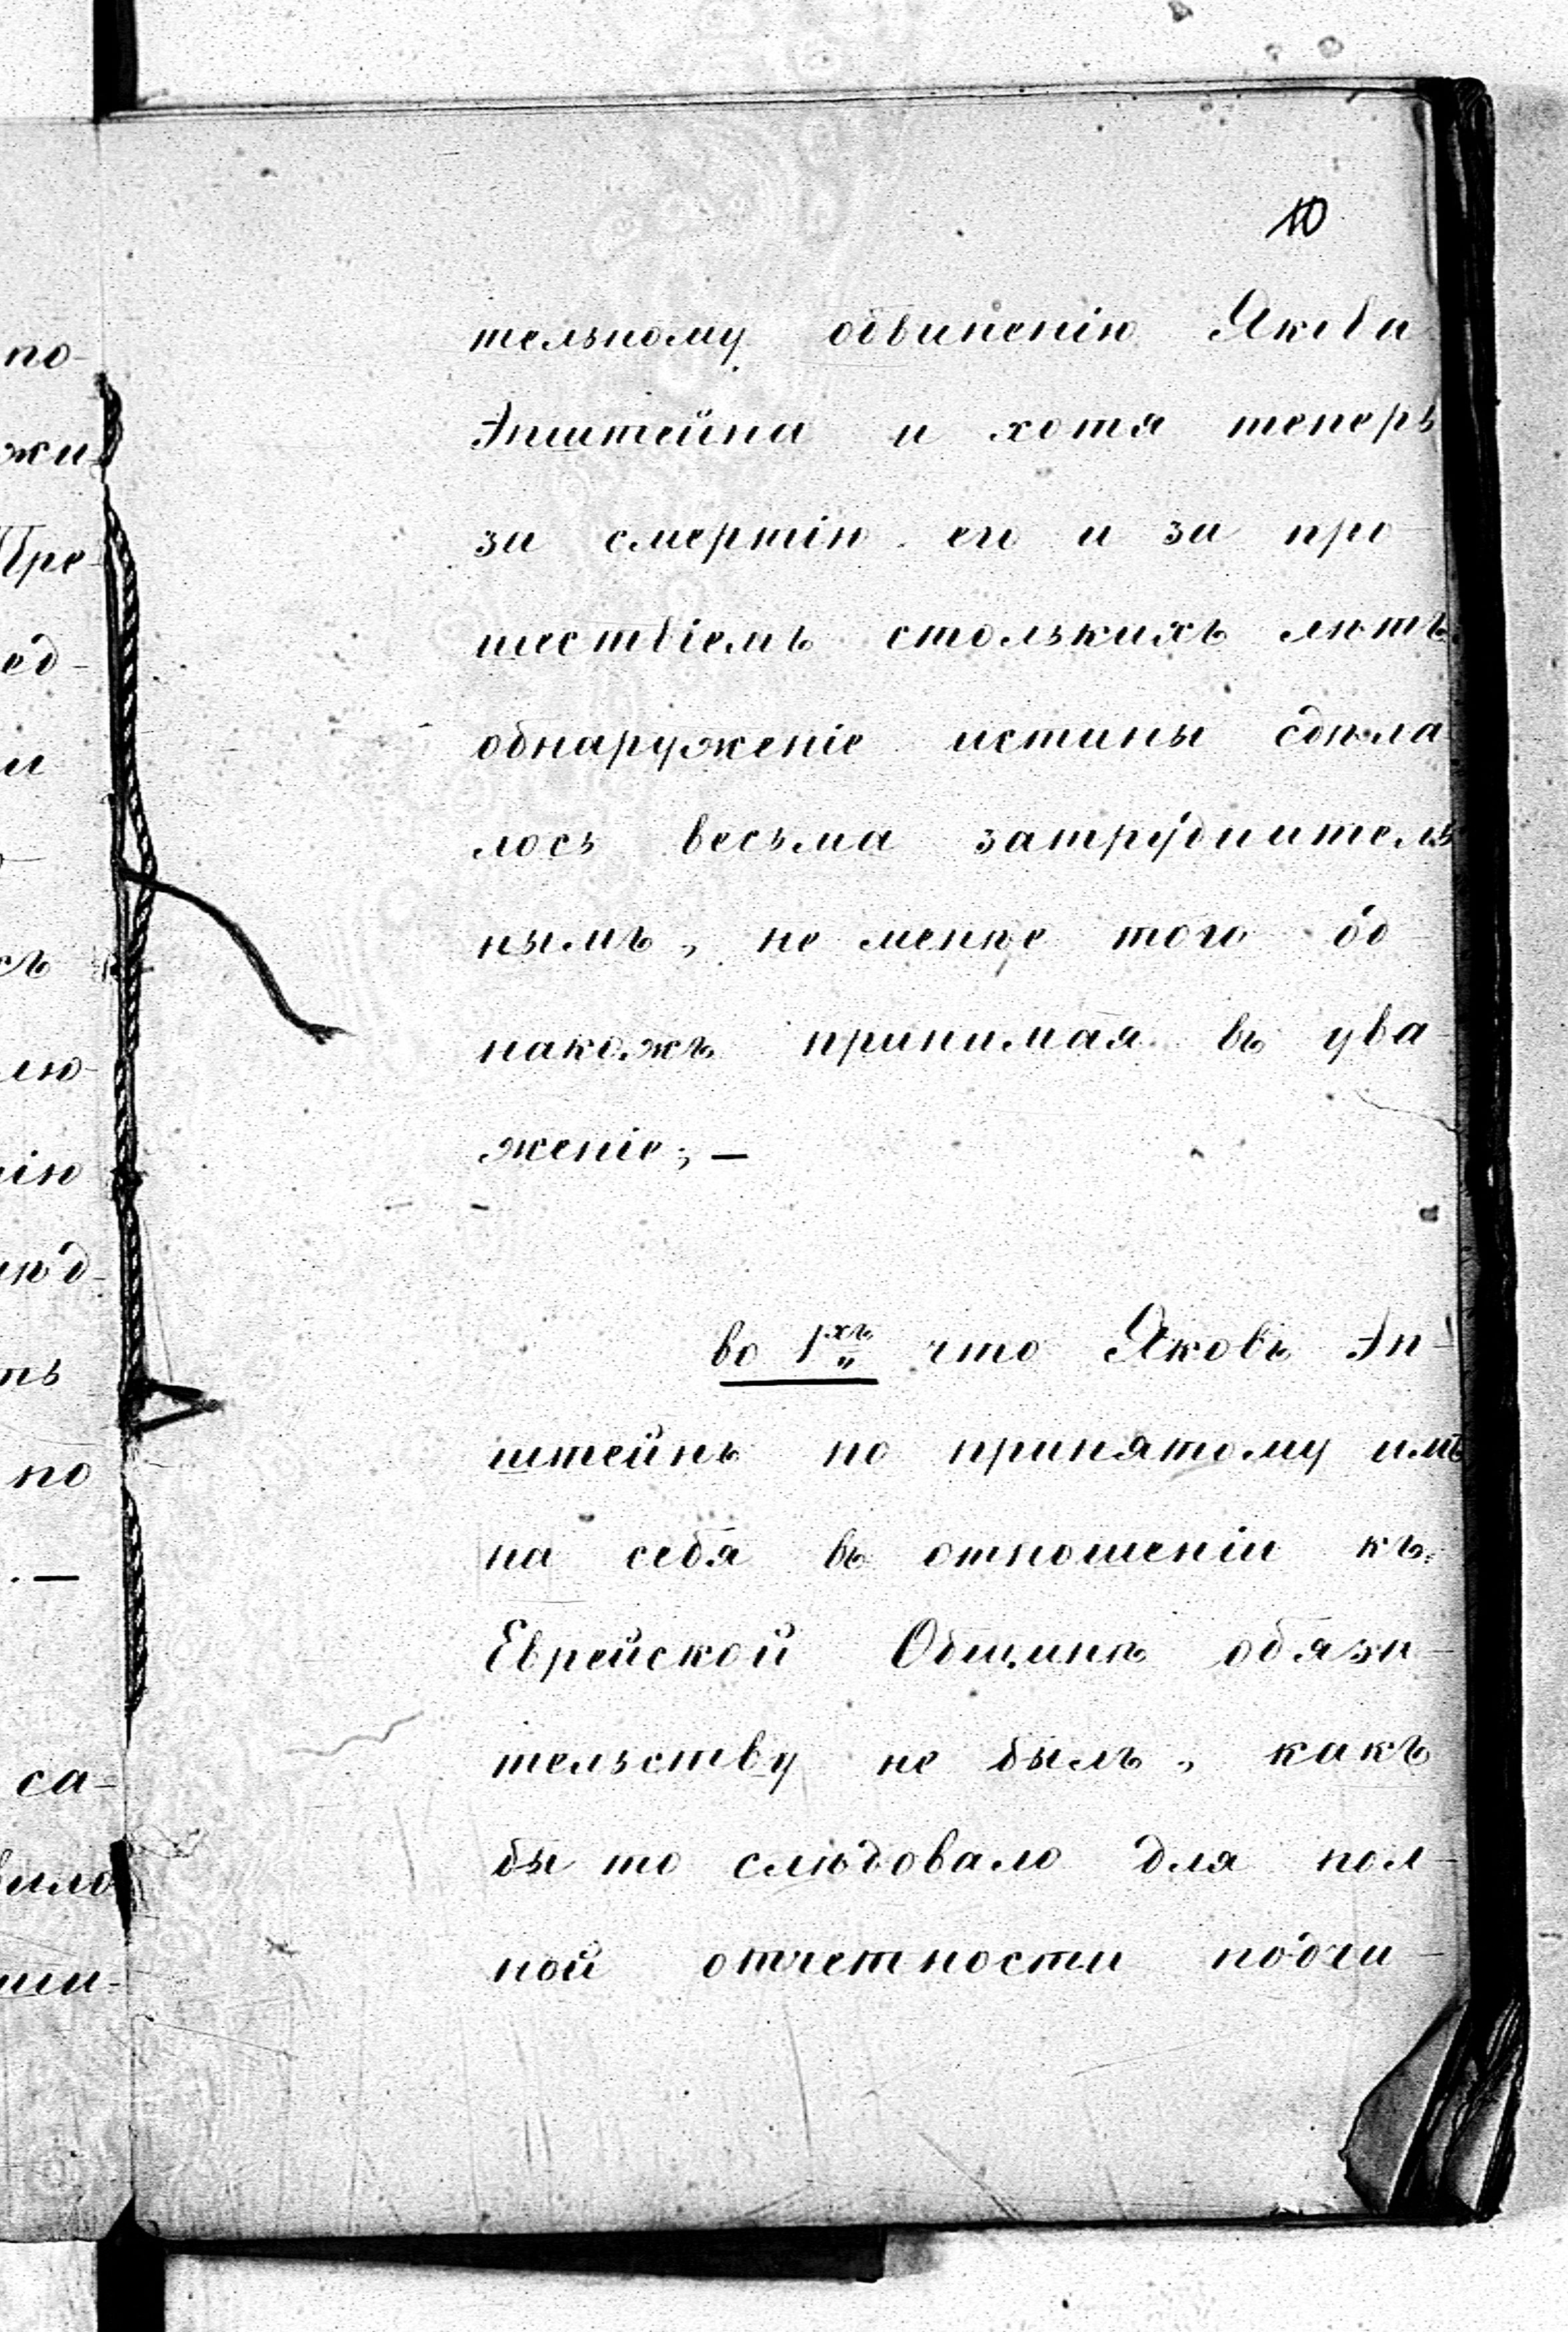 10
тельному обвиненію Якова
Эпштейна и хотя теперь
за смертію его и за про-
шествіемъ столькихъ лѣтъ
обнаруженіе истины сдѣла
лось весьма затруднитель
нымъ, не менѣе того од-
накожъ принимая въ ува-
женіе; —
во 1хъ„ что Яковъ Эп-
штейнъ по принятому имъ
на себя въ отношеніи къ
Еврейской Общинѣ обяза-
тельству не былъ, какъ
бы то слѣдовало для пол-
ной отчетности подчи-
по-
жи
Пре-
ед-
и
съ
лю-
нію
люд-
ть
по
. —
са-
вило
ши-